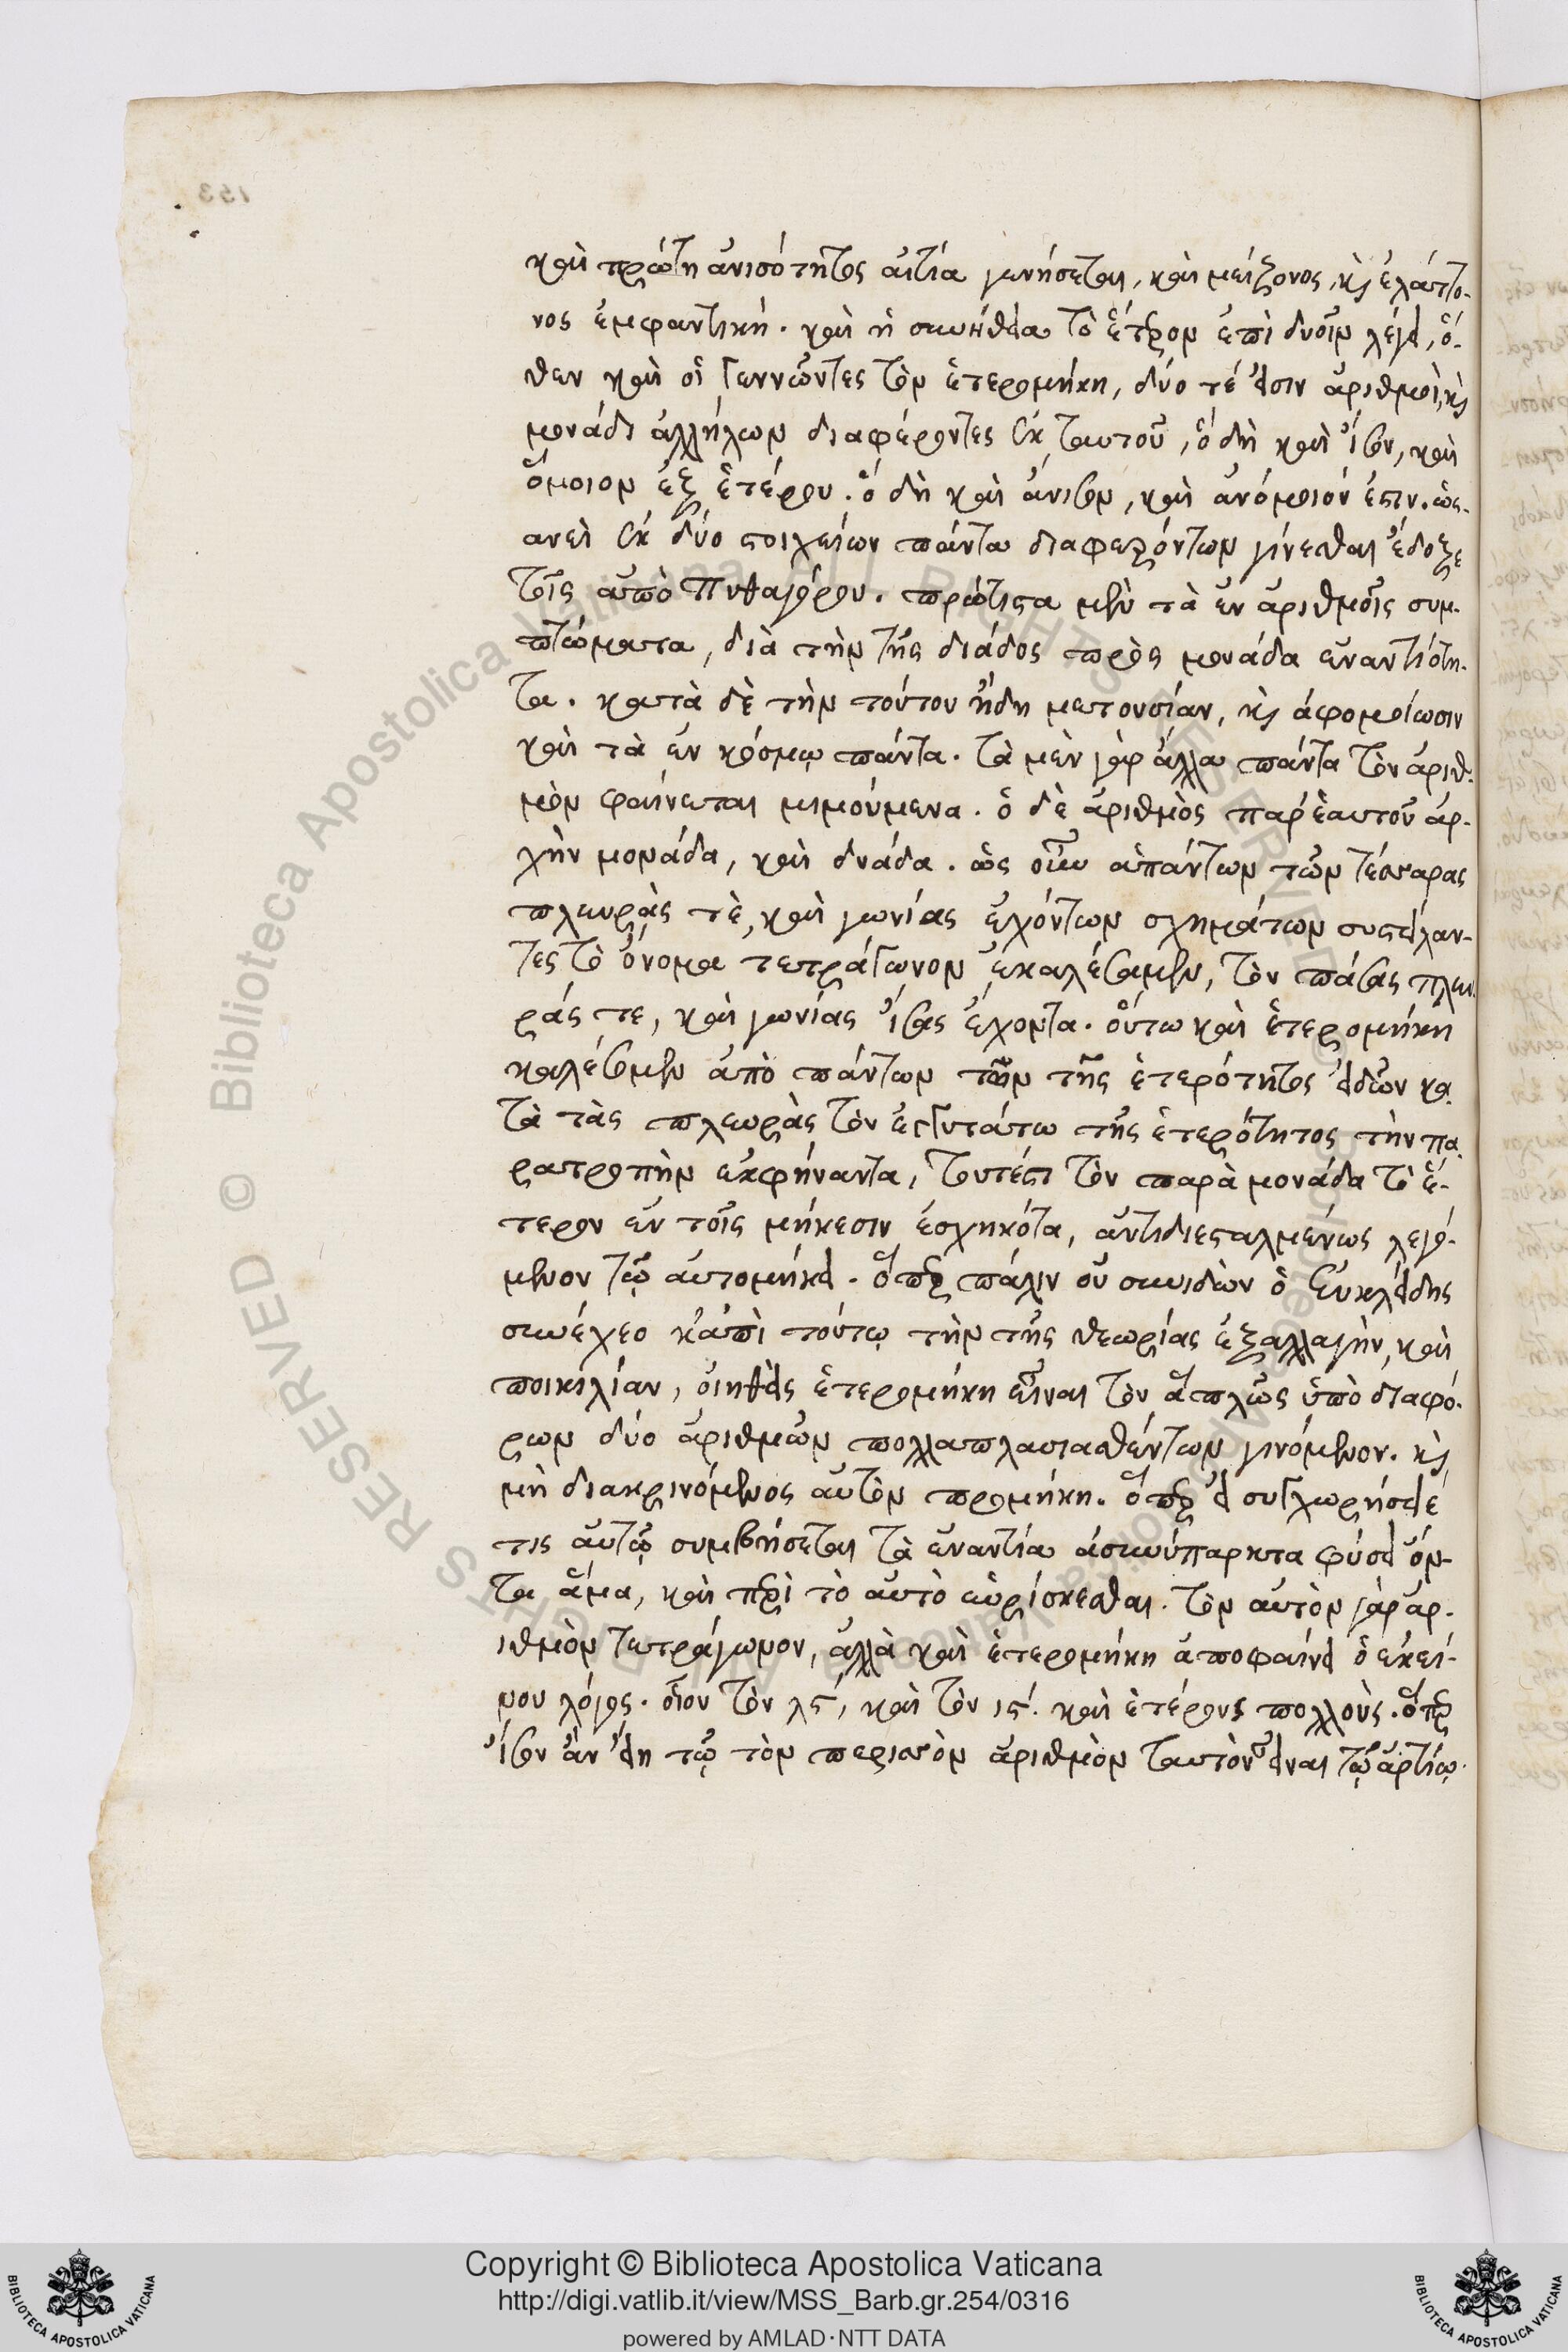 καὶ πρώτη ἀνισότητος αἰτία γενήσεται, καὶ μείζονος, κ̀ς ἐλάττο-
νος ἐμφαντική. καὶ ἡ συνήθεια τὸ ἕτερον ἐπὶ δυοῖν λέγει, ὅ-
θεν καὶ οἱ γεννῶντες τὸν ἑτερομήκη, δύο τέ εἰσιν ἀριθμοὶ, κ̀ς
μονάδι ἀλλήλων διαφέροντες ἐκ ταυτοῦ, ὃ δὴ καὶ ἴσον, καὶ
ὅμοιον ἐξ ἑτέρου. ὃ δὴ καὶ ἄνισον, καὶ ἀνόμοιόν ἐστιν. ὡς-
ανεὶ ἐκ δύο στοιχείων πάντα διαφερόντων γίνεσθαι ἔδοξε
τοῖς ἀπὸ Πυθαγόρου. πρώτιστα μὲν τὰ ἐν ἀριθμοῖς συμ-
πτώματα, διὰ τὴν τῆς διάδος πρὸς μονάδα ἐναντιότη-
τα. κατὰ δὲ τὴν τούτου ἤδη μετουσίαν, κ̀ς ἀφομοίωσιν
καὶ τὰ ἐν κόσμῳ πάντα. τὰ μὲν γὰρ ἄλλα πάντα τὸν ἀριθ-
μὸν φαίνεται μιμούμενα. ὁ δὲ ἀριθμὸς παρ' ἑαυτοῦ ἀρ-
χὴν μονάδα, καὶ δυάδα. ὡς οὖν ἁπάντων τῶν τέσσαρας
πλευρὰς τὲ, καὶ γωνίας ἐχόντων σχημάτων συστείλαν-
τες τὸ ὄνομα τετράγωνον ἐκαλέσαμεν, τὸν πάσας πλευ-
ράς τε, καὶ γωνίας ἴσας ἔχοντα. οὕτω καὶ ἑτερομήκη
καλέσομεν ἀπὸ πάντων τῶν τῆς ἑτερότητος εἰδῶν κα-
τὰ τὰς πλευρὰς τὸν ἐγγυτάτω τῆς ἑτερότητος τὴν πα-
ρατροπὴν ἐκφήναντα, τουτέστι τὸν παρὰ μονάδα τὸ ἕ-
τερον ἐν τοῖς μήκεσιν ἐσχηκότα, ἀντιδιεσταλμένως λεγό-
μενον τῷ αὐτομήκει. ὅπερ πάλιν οὐ συνιδὼν ὁ Εὐκλείδης
συνέχεο κἀπὶ τούτῳ τὴν τῆς θεωρίας ἐξαλλαγὴν, καὶ
ποικιλίαν, οἰηθεὶς ἑτερομήκη εἶναι τὸν ἁπλῶς ὑπὸ διαφό-
ρων δύο ἀριθμῶν πολλαπλασιασθέντων γινόμενον. κ̀ς
μὴ διακρινόμενος αὐτὸν προμήκη. ὅπερ εἰ συγχωρήσειέ
τις αὐτῷ συμβήσεται τὰ ἐναντία ἀσυνύπαρκτα φύσει ὄν-
τα ἅμα, καὶ περὶ τὸ αὐτὸ εὑρίσκεσθαι. τὸν αὐτὸν γὰρ ἀρ-
ιθμὸν τετράγωνον, ἀλλὰ καὶ ἑτερομήκη ἀποφαίνει ὁ ἐκεί-
νου λόγος. οἷον τὸν λϛ΄, καὶ τὸν ιϛ΄. καὶ ἑτέρους πολλοὺς. ὅπερ
ἴσον ἂν εἴη τῷ τὸν περισσὸν ἀριθμὸν ταυτὸν εἶναι τῷ ἀρτίῳ.
Copyright © Biblioteca Apostolica Vaticana
http://digi.vatlib.it/view/MSS_Barb.gr.254/0316
powered by AMLAD·NTT DATA